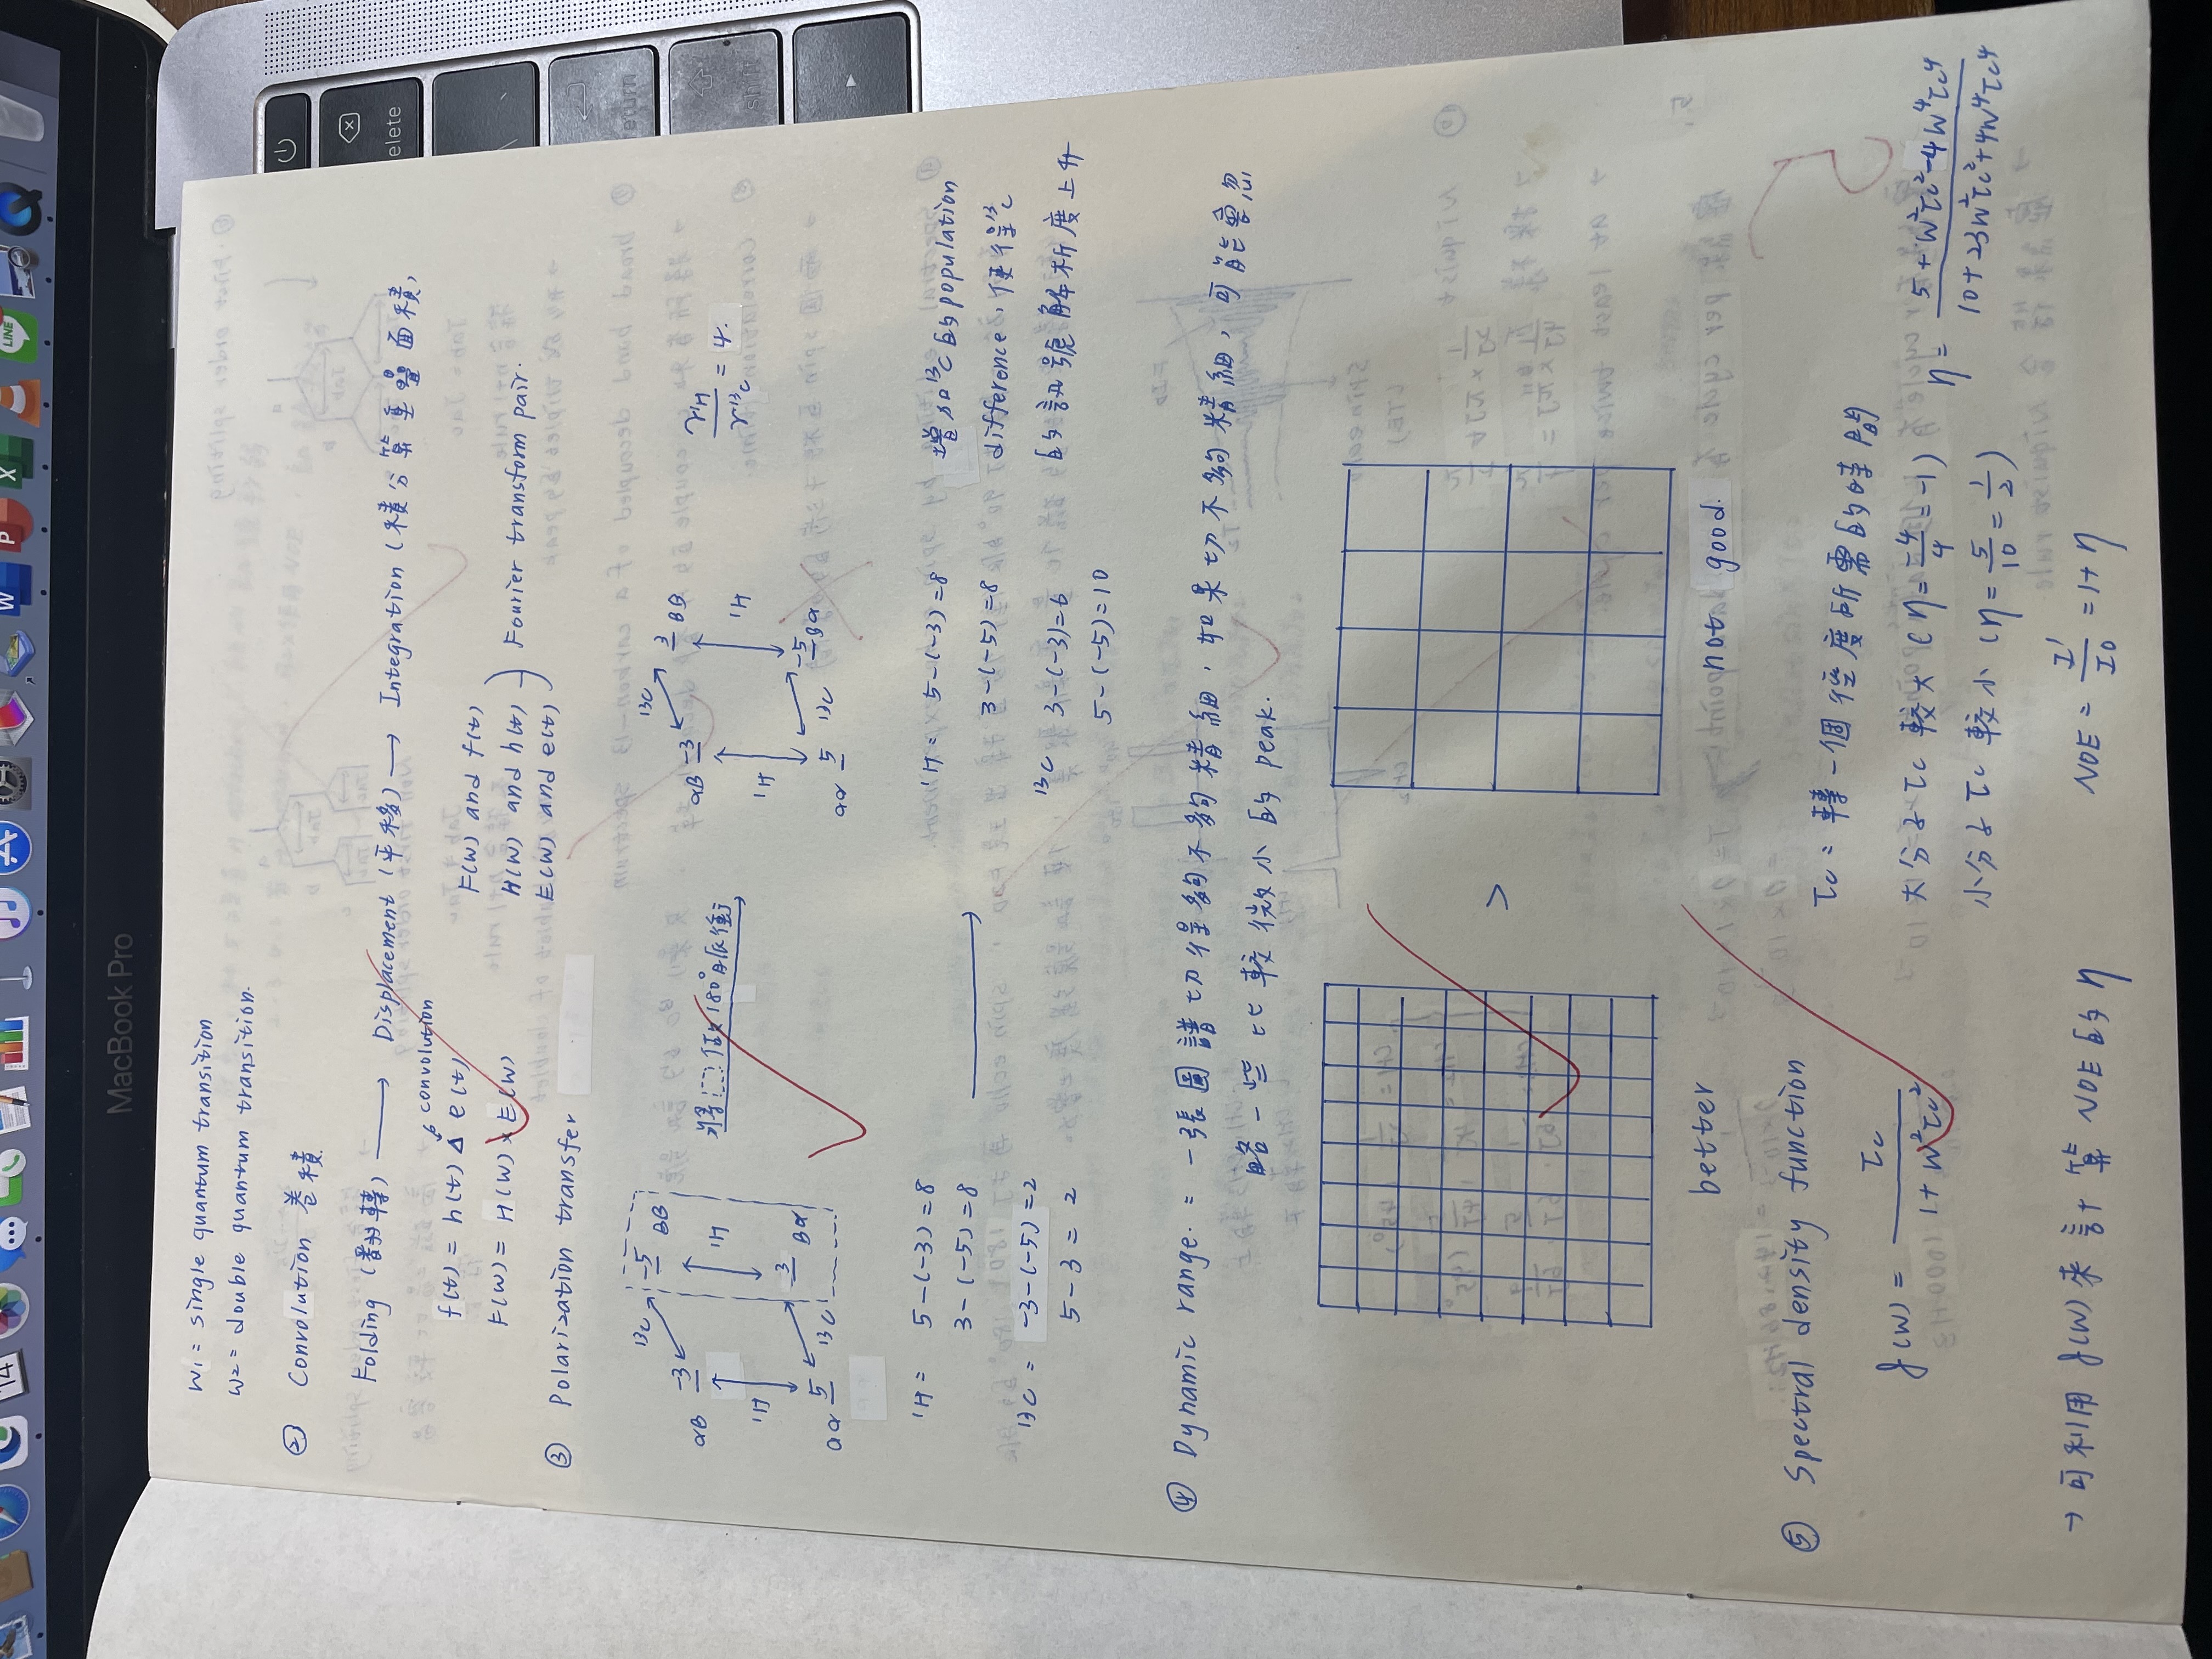 14
W
P
X
LINE
MacBook Pro
delete
return
shift
W1 = single quantum transition
W2 = double quantum transition.
② Convolution 卷積
Folding (翻轉) → Displacement (平移) → Integration (積分算重疊面積,
convolution
f(t) = h(t) Δ e(t)
F(W) = H(W) × E(W)
F(W) and f(t)
H(W) and h(t)
E(W) and e(t)
Fourier transform pair.
③ Polarization transfer
13C -5 BB
αB -3
1H 1H
3 Bα
αα 5 13C
將 做180°脈衝
13C 3 BB
αB -3
1H 1H
-5 Bα
αα 5 13C
γ1H / γ13C = 4.
1H = 5-(-3)=8
3-(-5)=8
13C = -3-(-5)=2
5-3 = 2
1H = 5-(-3)=8
3-(-5)=8
13C 3-(-3)=6
5-(-5)=10
增加13C的population
difference, 使得13C
的訊號解析度上升
④ Dynamic range. = 一張圖譜切得夠不夠精細, 如果切不夠精細, 可能會忽
略一些比較微小的 peak.
>
better
not good.
⑤ Spectral density function
J(W) = τc / 1+W²τc²
τc = 轉一個徑度所需的時間
大分子 τc 較大 (η = -4/4 = -1)
小分子 τc 較小 (η = 5/10 = 1/2)
η = 5+W²τc²-4W⁴τc⁴ / 10+23W²τc²+4W⁴τc⁴
→ 可利用 J(W) 來計算 NOE 的 η
NOE = I'/I0 = 1+η